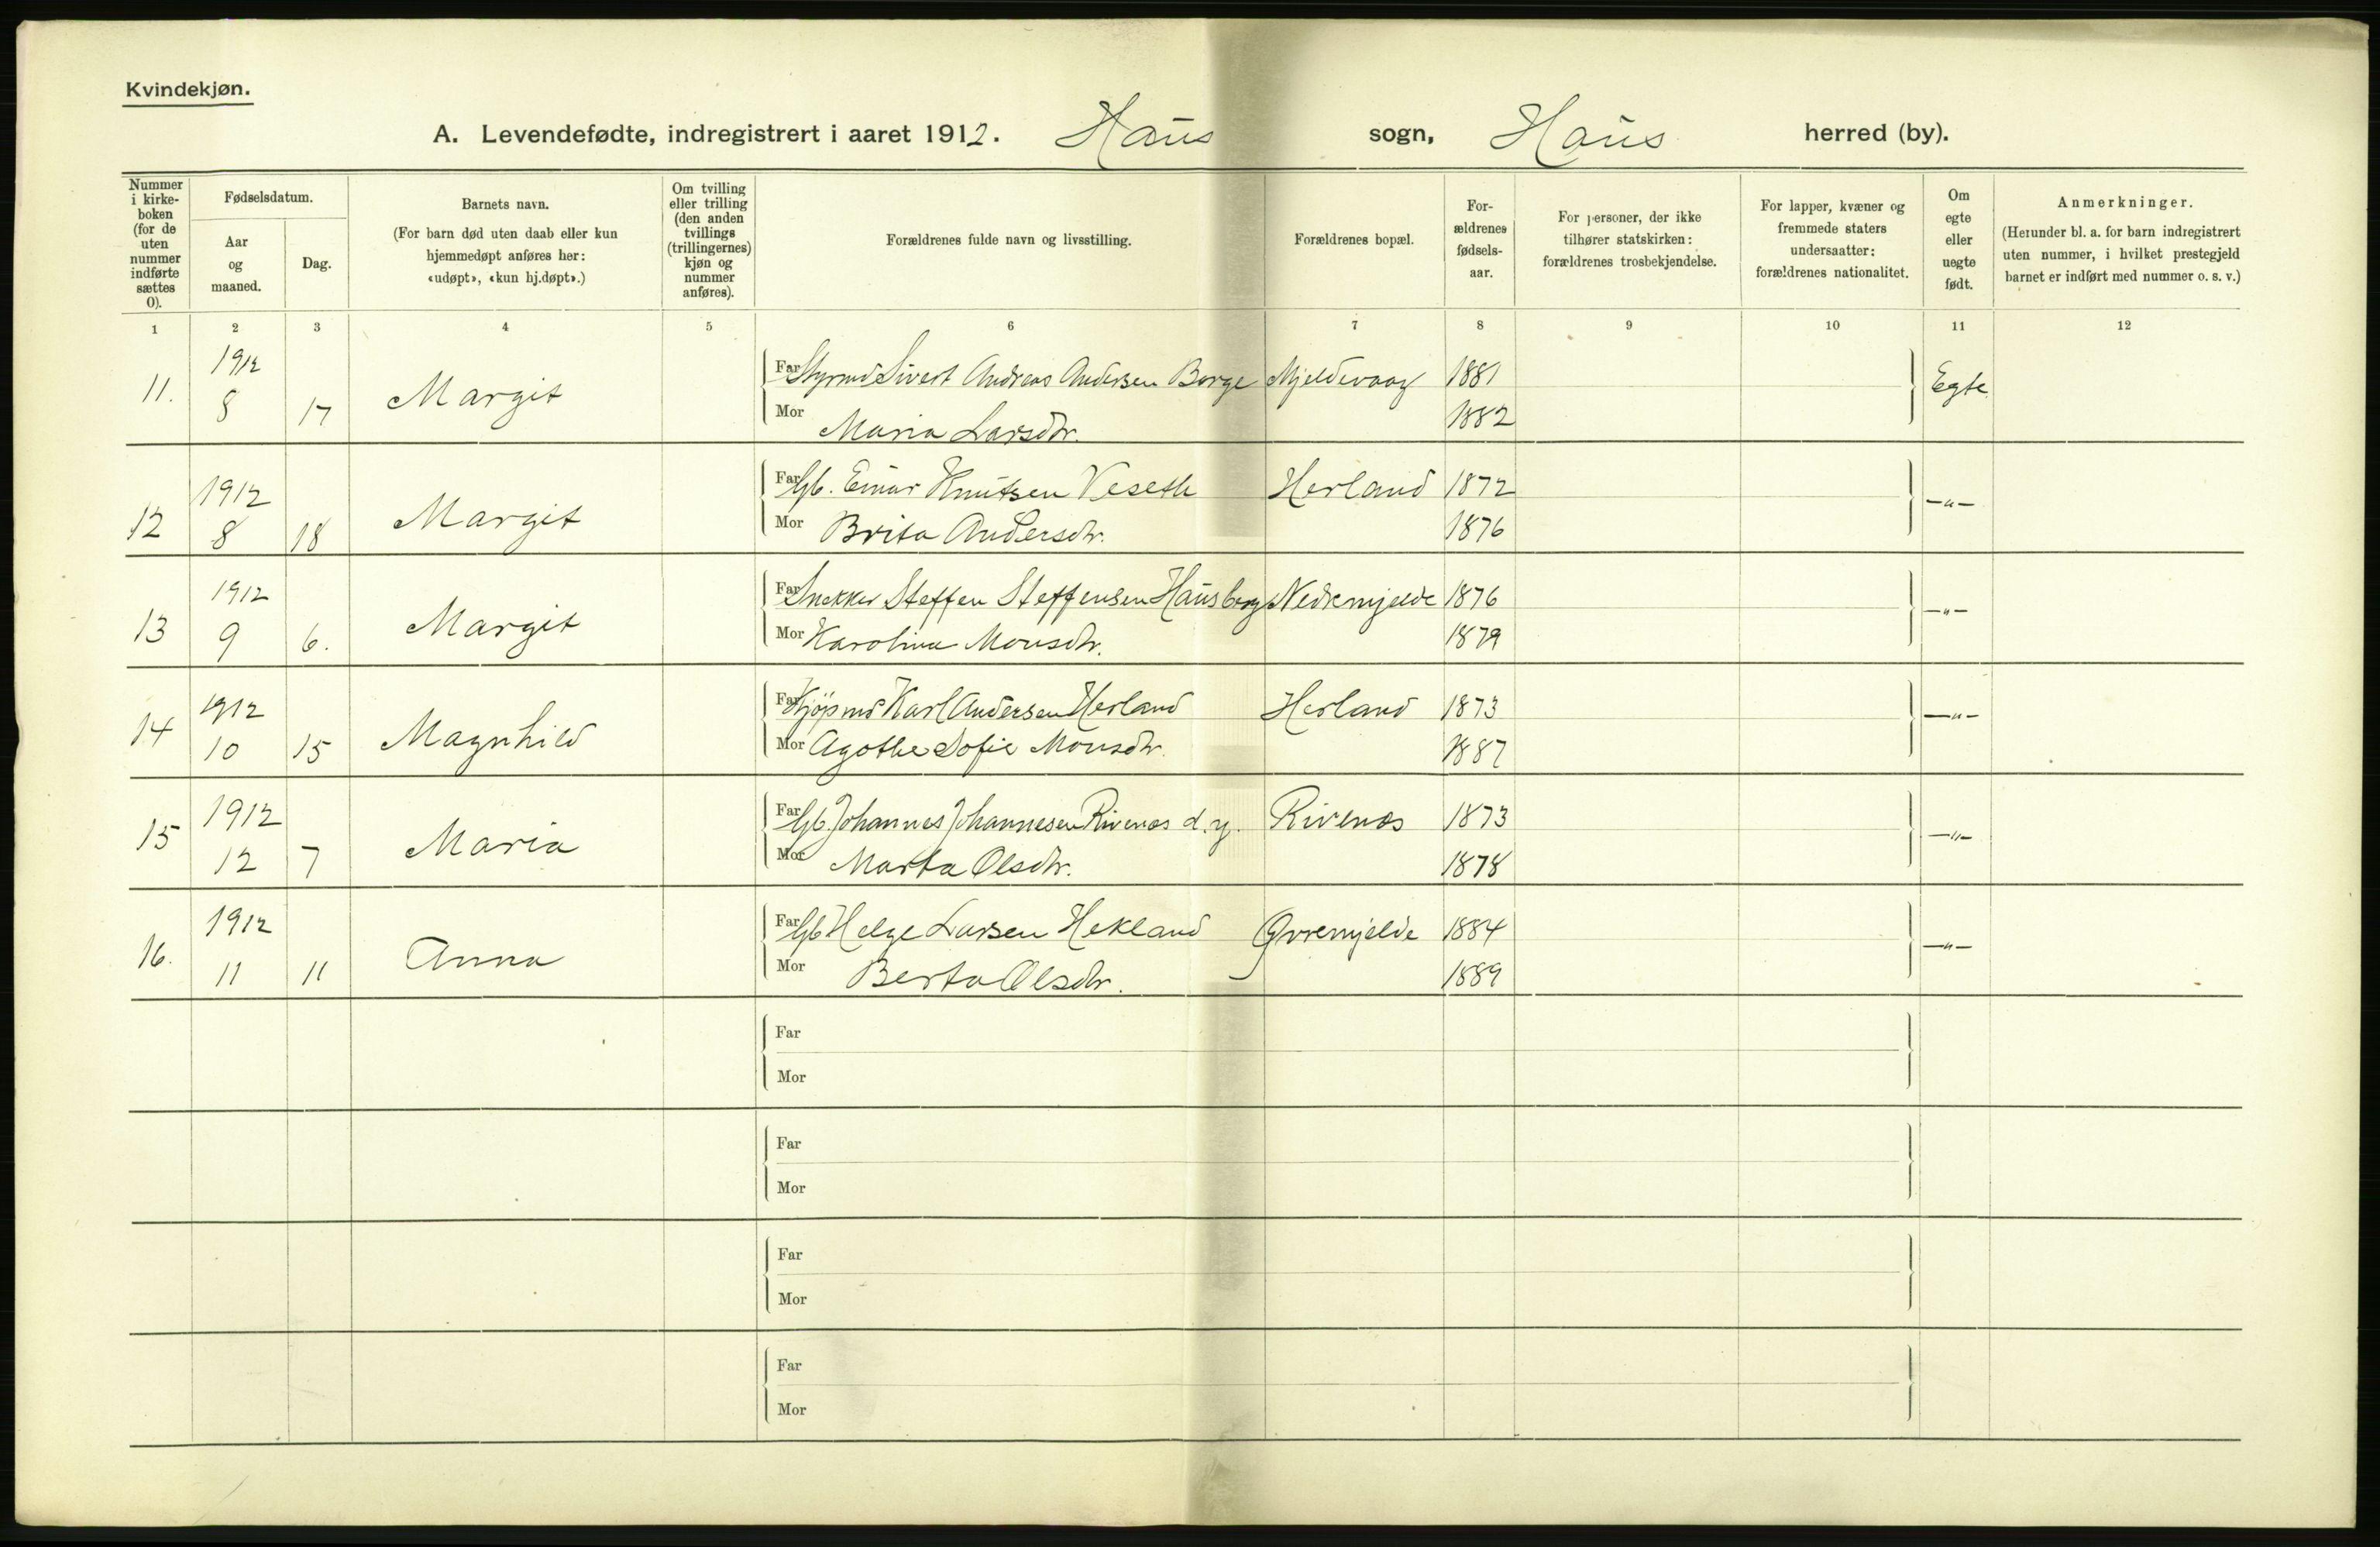 Kvindekjøn.
A. Levendefødte, indregistrert i aaret 1912. Haus sogn, Haus herred (by).
Nummer i kirke-boken (for de uten nummer indførte sættes 0).
Fødselsdatum.
Aar og maaned.
Dag.
Barnets navn.
(For barn død uten daab eller kun hjemmedøpt anføres her: «udøpt», «kun hj.døpt».)
Om tvilling eller trilling (den anden tvillings (trillingernes) kjøn og nummer anføres).
Forældrenes fulde navn og livsstilling.
Forældrenes bopæl.
For-ældrenes fødsels-aar.
For personer, der ikke tilhører statskirken: forældrenes trosbekjendelse.
For lapper, kvæner og fremmede staters undersaatter: forældrenes nationalitet.
Om egte eller uegte født.
Anmerkninger.
(Herunder bl. a. for barn indregistrert uten nummer, i hvilket prestegjeld barnet er indført med nummer o. s. v.)
1 2 3 4 5 6 7 8 9 10 11 12
11. 1912 8 17 Margit Far Styrmd Sivert Andreas Andersen Borge Mjeldevaag 1881 Egte
Mor Maria Larsdtr. 1882
12 1912 8 18 Margit Far Gb. Einar Knutsen Veseth Herland 1872 —"—
Mor Brita Andersdtr. 1876
13 1912 9 6. Margit Far Snekker Steffen Steffensen Hausberg Nedremjelde 1876 —"—
Mor Karolina Monsdtr. 1879
14 1912 10 15 Magnhild Far Kjöpmd Karl Andersen Herland Herland 1873 —"—
Mor Agothe Sofie Monsdtr. 1887
15 1912 12 7 Maria Far Gb. Johannes Johannesen Rivenæs d. y. Rivenæs 1873 —"—
Mor Marta Olsdtr. 1878
16. 1912 11 11 Anna Far Gb Helge Larsen Hekland Øvremjelde 1884 —"—
Mor Berta Olsdtr. 1889
Far
Mor
Far
Mor
Far
Mor
Far
Mor